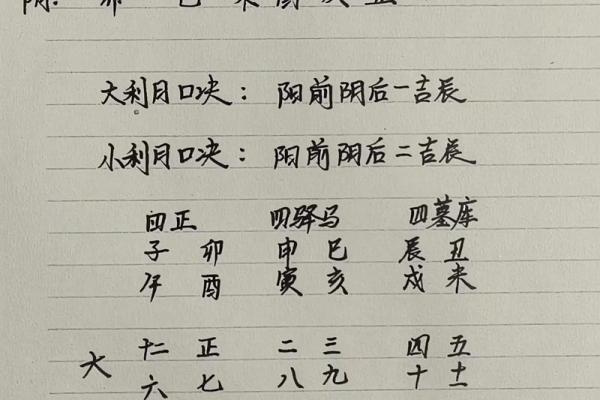 大利月口决：阳前阴后一吉辰
小利月口决：阳前阴后二吉辰
四正 四驿马 四墓库
子 卯 申 巳 辰 丑
午 酉 寅 亥 戌 未
大 十二 正 二 三 四 五
六 七 八 九 十 十一